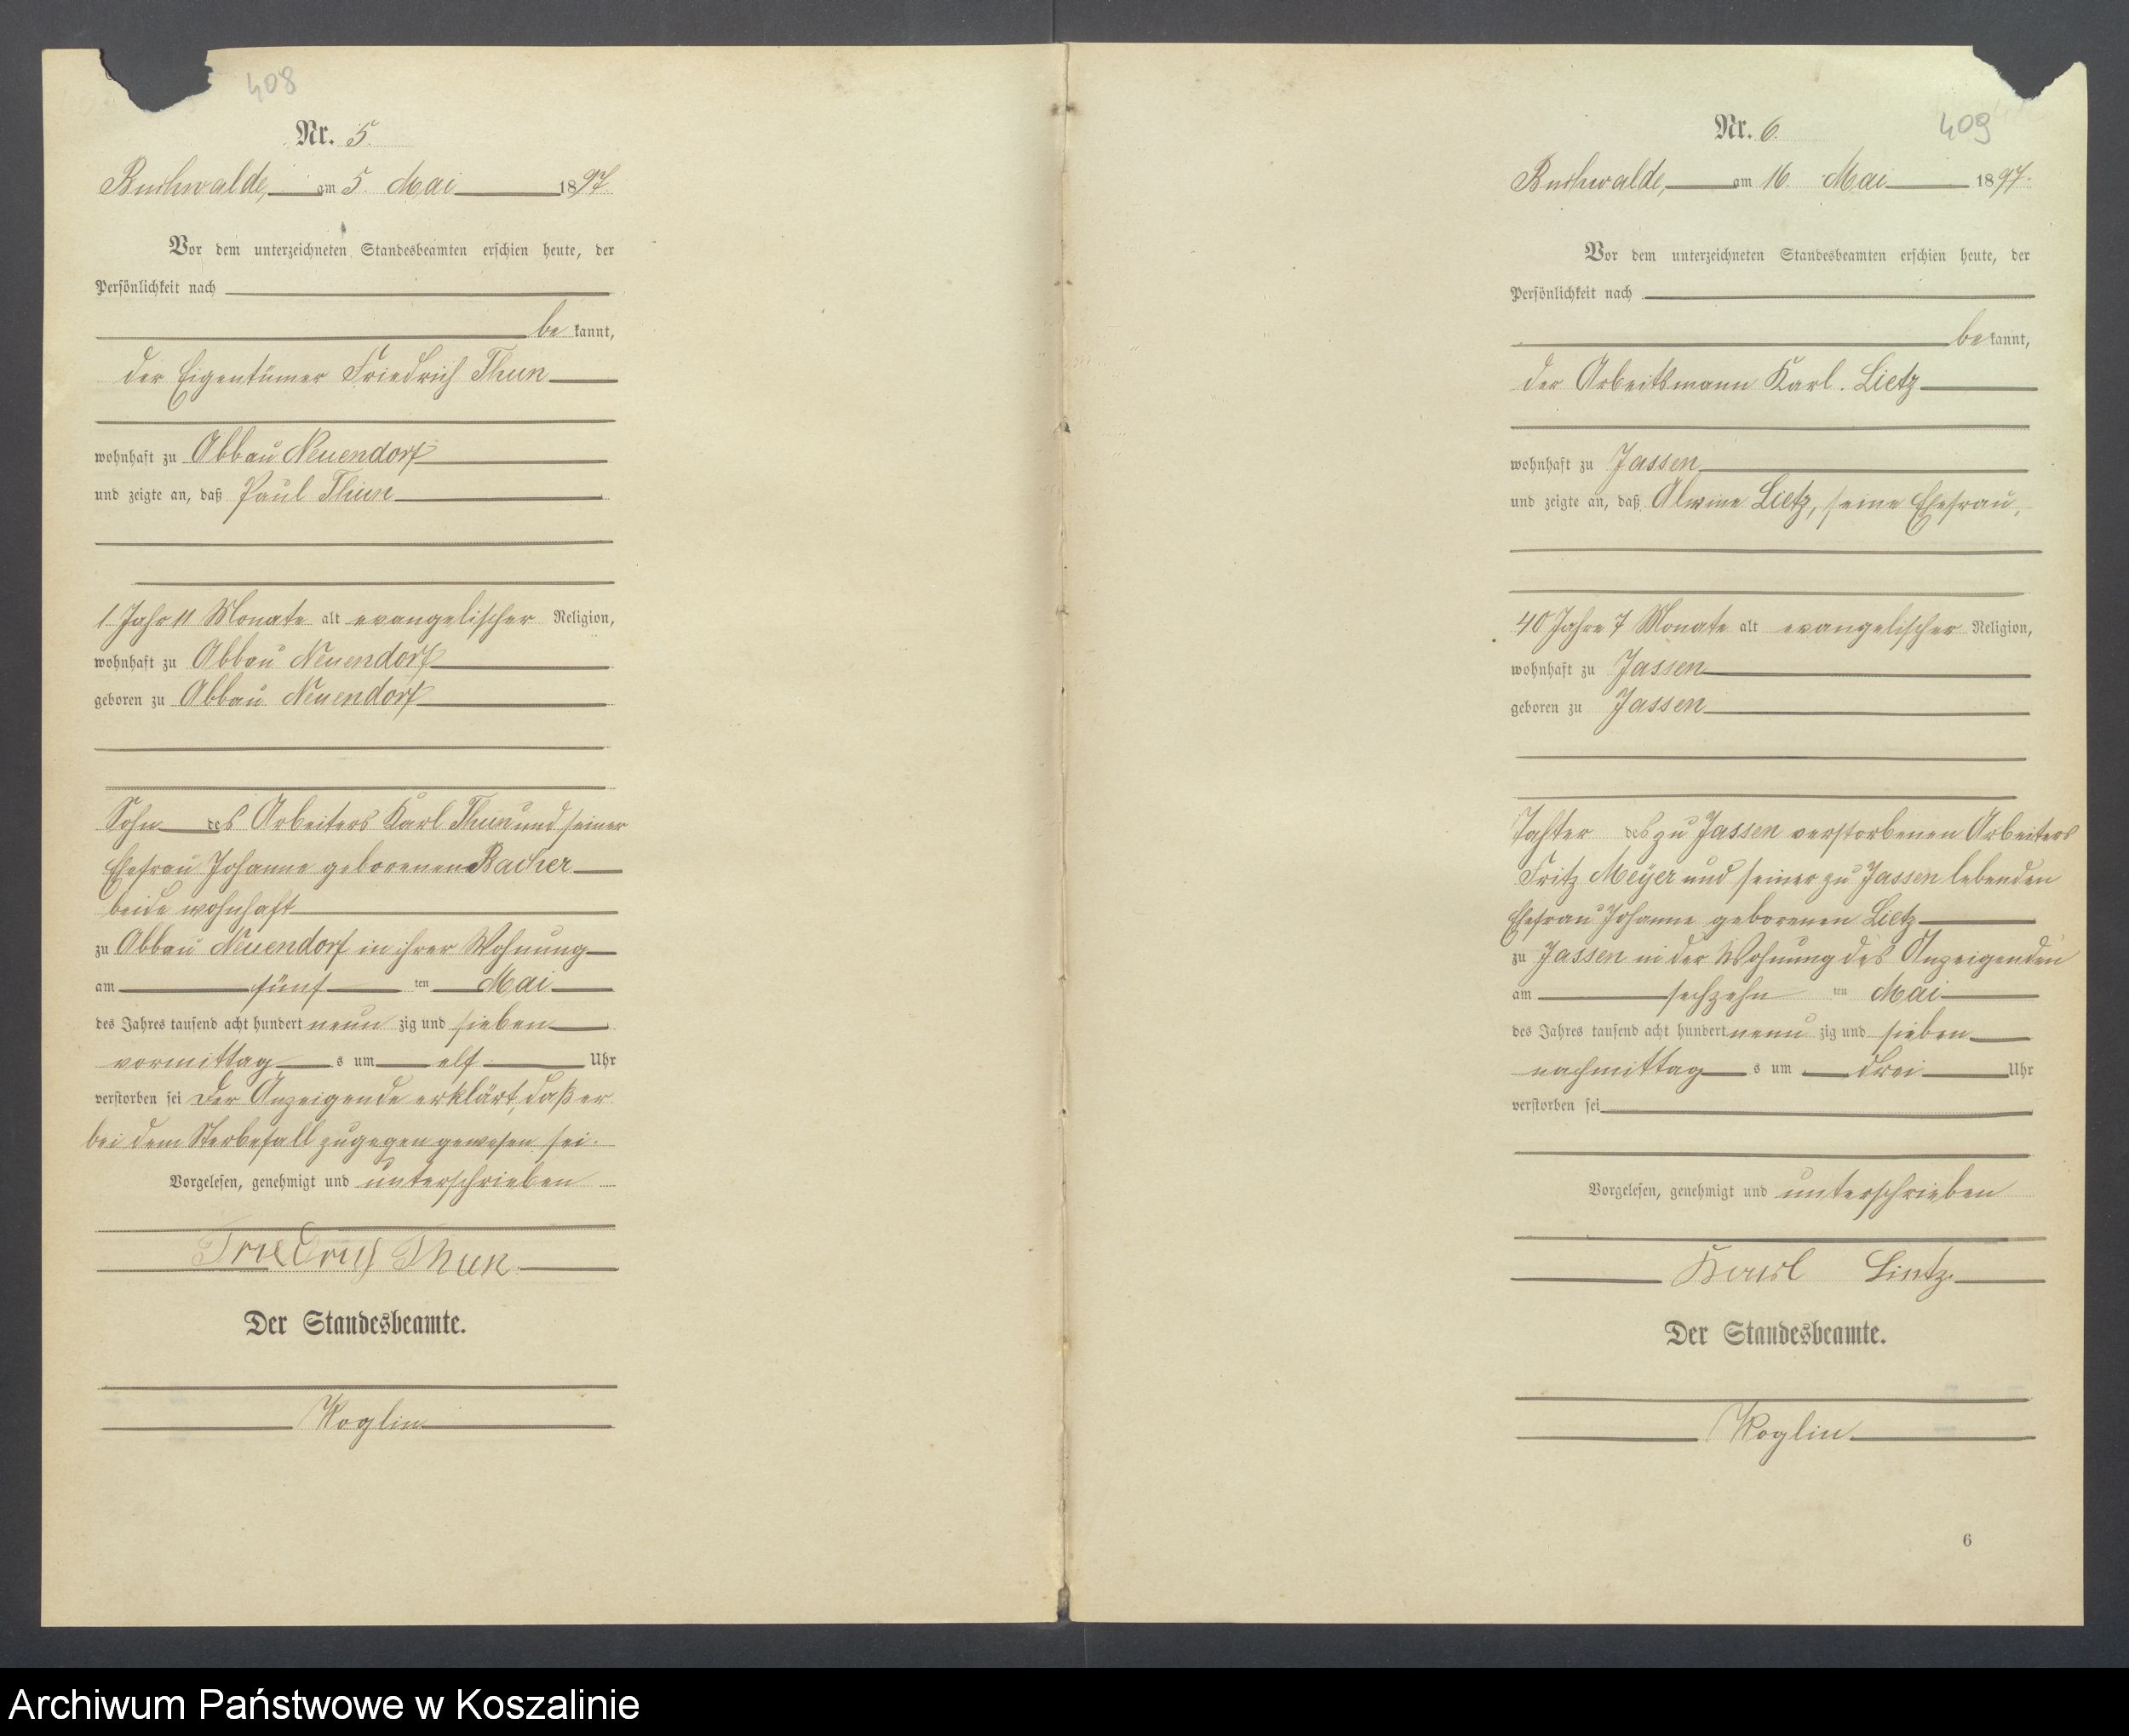 408
Nr. 5.
Buchwalde, am 5. Mai 1897.
Vor dem unterzeichneten Standesbeamten erschien heute, der
Persönlichkeit nach
be kannt,
der Eigentümer Friedrich Thun
wohnhaft zu Abbau Neuendorf
und zeigte an, daß Paul Thun
1 Jahr 11 Monate alt evangelischer Religion,
wohnhaft zu Abbau Neuendorf
geboren zu Abbau Neuendorf
Sohn des Arbeiters Karl Thun und seiner
Ehefrau Johanne geborenen Racher
beide wohnhaft
zu Abbau Neuendorf in ihrer Wohnung
am fünf ten Mai
des Jahres tausend acht hundert neun zig und sieben
vormittag s um elf Uhr
verstorben sei Der Anzeigende erklärt, daß er
bei dem Sterbefall zugegen gewesen sei.
Vorgelesen, genehmigt und unterschrieben
Friedrich Thun.
Der Standesbeamte.
Koglin
409
Nr. 6.
Buchwalde, am 16. Mai 1897.
Vor dem unterzeichneten Standesbeamten erschien heute, der
Persönlichkeit nach
be kannt,
der Arbeitsmann Karl Lietz
wohnhaft zu Jassen
und zeigte an, daß Alwine Lietz, seine Ehefrau,
40 Jahre 7 Monate alt evangelischer Religion,
wohnhaft zu Jassen
geboren zu Jassen
Tochter des zu Jassen verstorbenen Arbeiters
Fritz Meyer und seiner zu Jassen lebenden
Ehefrau Johanne geborenen Lietz
zu Jassen in der Wohnung des Anzeigenden
am sechzehn ten Mai
des Jahres tausend acht hundert neun zig und sieben
nachmittag s um drei Uhr
verstorben sei
Vorgelesen, genehmigt und unterschrieben
Karl Lietz.
Der Standesbeamte.
Koglin.
6
Archiwum Państwowe w Koszalinie